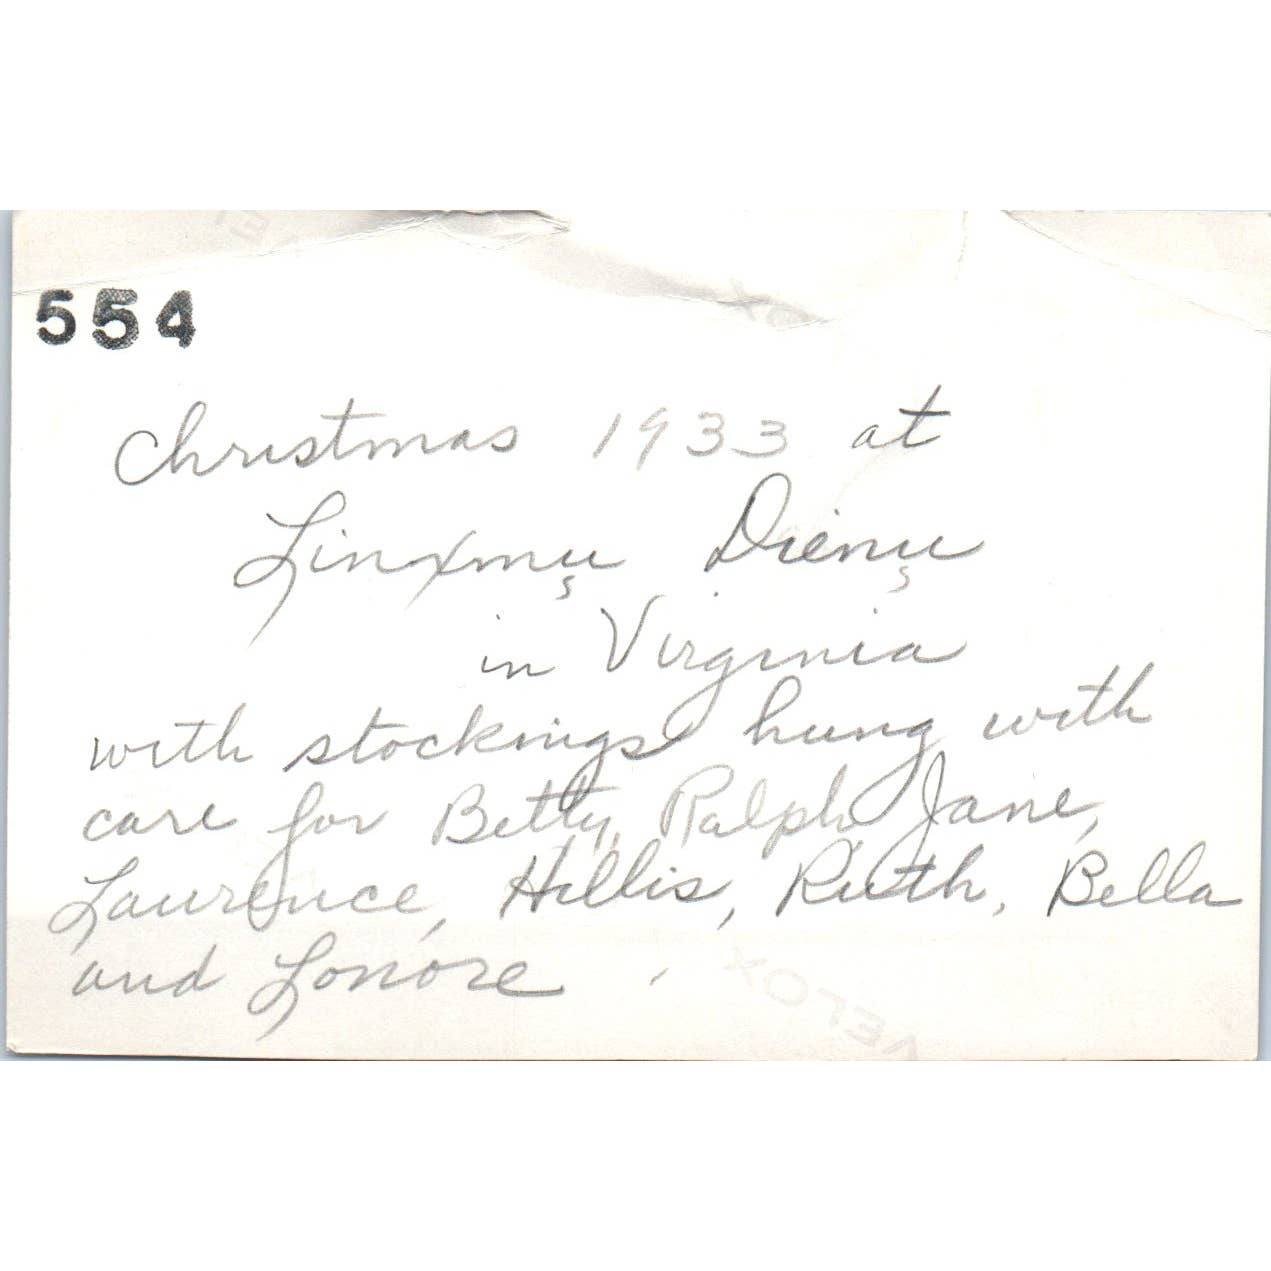 554
Christmas 1933 at
Linxmu Dienu
in Virginia
with stockings hung with
care for Betty, Ralph Jane,
Laurence, Hillis, Ruth, Bella
and Lonore
VELOX